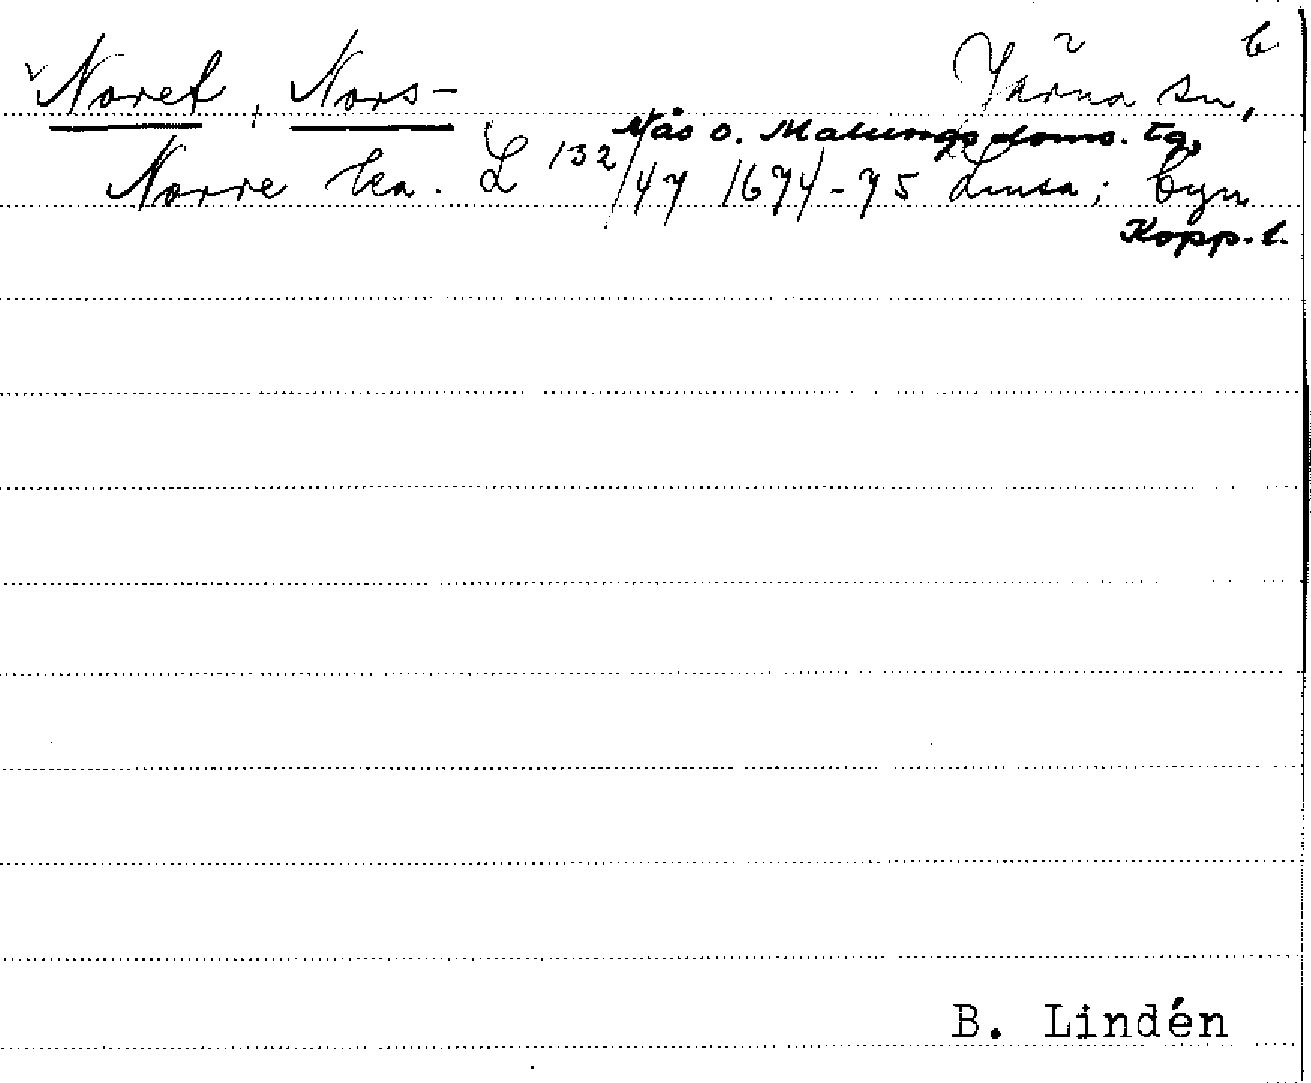 b
Noret, Nors- Järna sn,
Nås o. Malungs doms. tg,
Norre ha. L 132/47 1674-75 Linsa; byn
Kopp. l.
B. Lindén